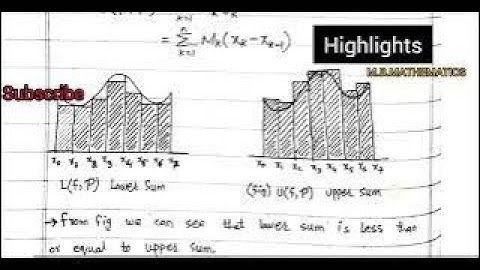 L(f, P) = Σ mₖ xₖ
n
= Σ Mₖ(xₖ - xₖ₋₁)
k=1
Highlights
M.B.MATHEMATICS
Subscribe
x₀ x₁ x₂ x₃ x₄ x₅ x₆ x₇
x₀ x₁ x₂ x₃ x₄ x₅ x₆ x₇
L(f, P) Lower Sum
(fig) U(f, P) upper sum
→ from fig we can see that lower sum is less than
or equal to upper sum.